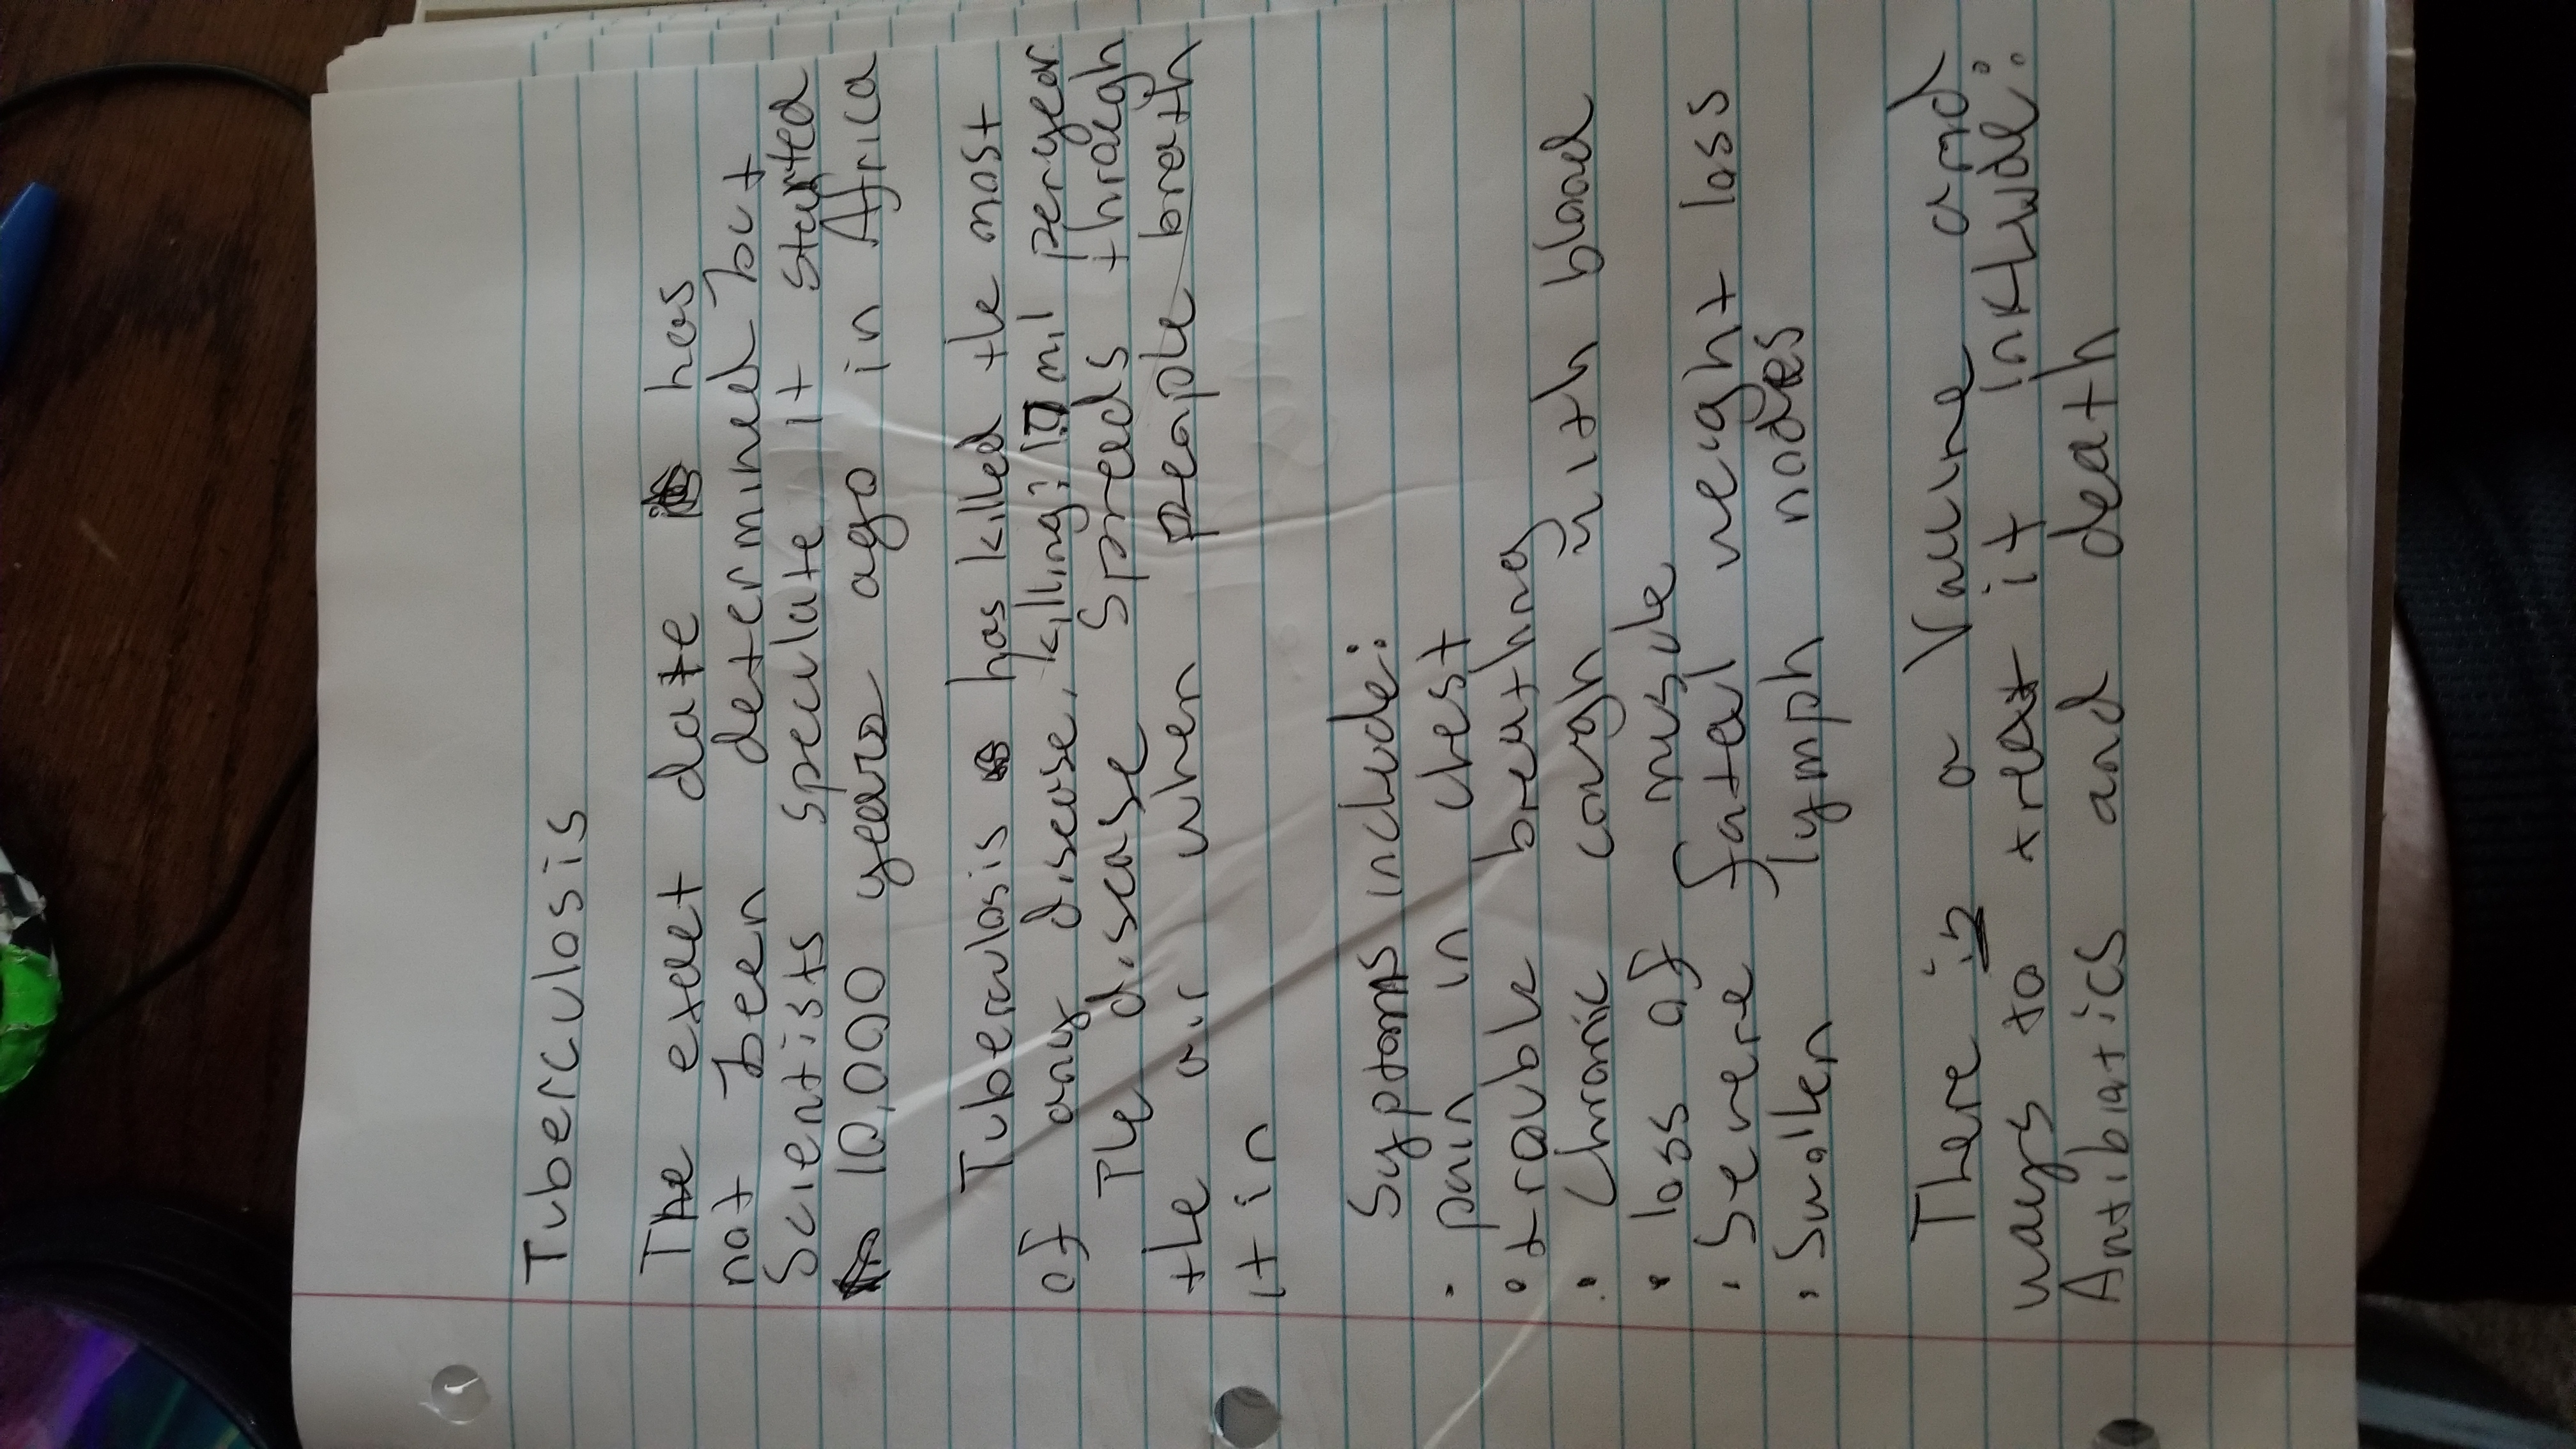 Tuberculosis
The exact date has
not been determined but
Scientists speculate it started
10,000 years ago in Africa
Tuberculosis has killed the most
of any disease, killing mil per year
The disease spreads through
the air when people breath
it in
Syptoms include:
• pain in chest
• trouble breathing
• Chronic cough with blood
• loss of musule
• Severe fatal weight loss
• Swollen lymph nodes
There is a Vaccine and
ways to treat it include:
Antibiotics and death